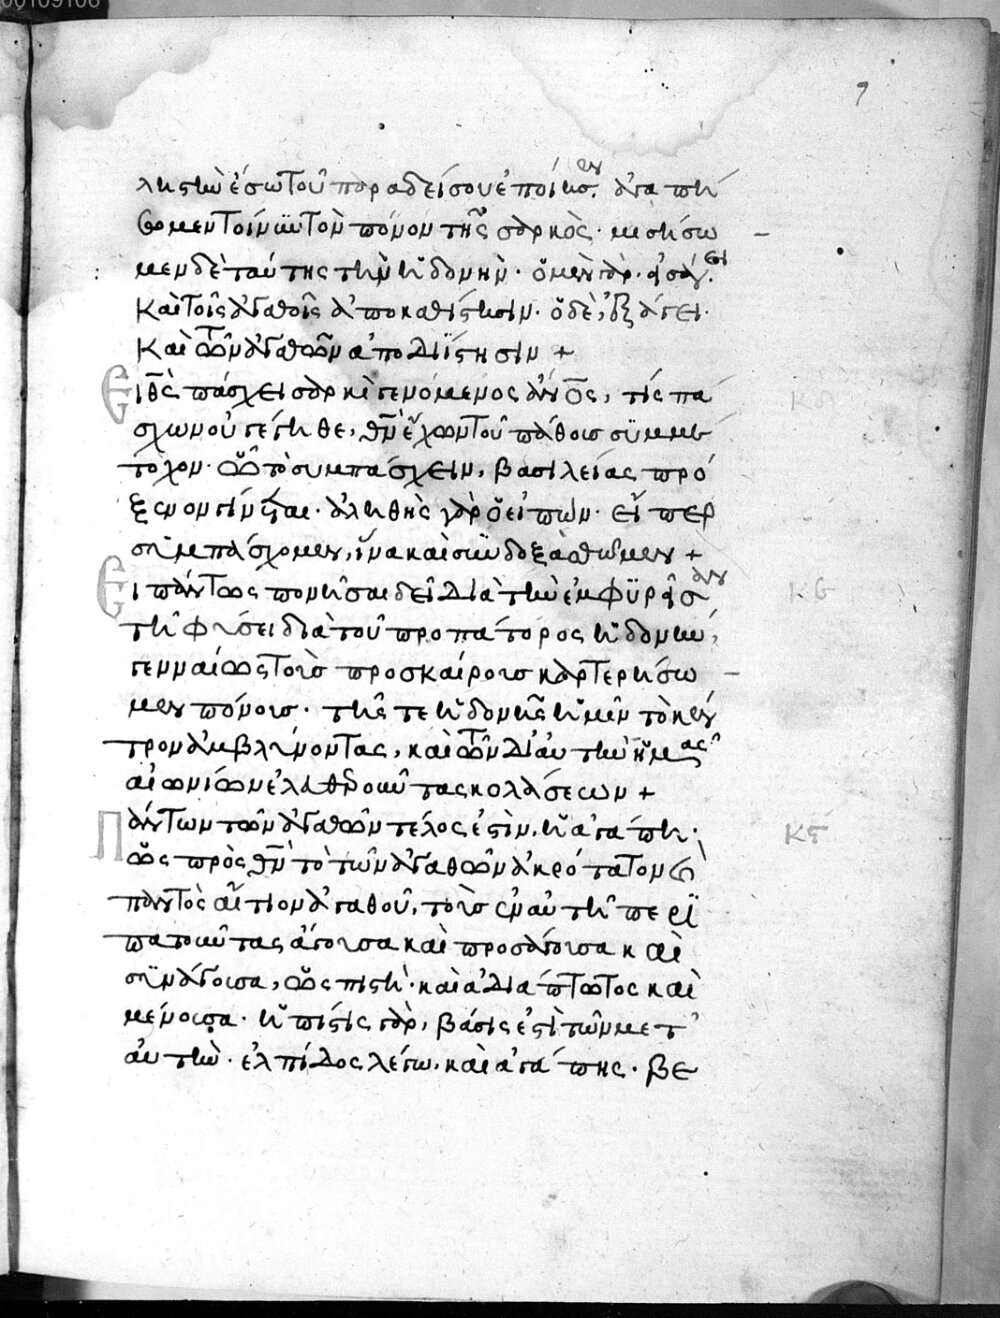 00109106
9
ληστὼ ἔσω τοῦ παραδείσου ἐποίησεν. ἀγαπή
σωμεν τοίνυν τὸν πόνον τῆς σαρκὸς· μισήσω
μεν δὲ ταύτης τὴν ἡδονὴν· ὁ μὲν γὰρ εἰσάγει
καὶ τοῖς ἀγαθοῖς ἀποκαθίστησιν· ὁ δὲ, ἐξάγει·
καὶ τῶν ἀγαθῶν ἀποδιΐστησιν +
Εἰ θς πάσχει σαρκὶ γενόμενος ἄνος, τίς πά
σχων οὐ γέγηθε, θν ἔχων τοῦ πάθους συμμέ
τοχον· τὸ συμπάσχειν, βασιλείας πρό
ξενον γίνεται· ἀληθὴς γὰρ ὁ εἰπών· εἴπερ
συμπάσχομεν, ἵνα καὶ συνδοξασθῶμεν +
Εἰ πάντως πονῆσαι δεῖ διὰ τὴν ἐμφυρεῖσαν
τῇ φύσει διὰ τοῦ προπάτορος ἡδονὴν,
γενναίως τοῖς προσκαίροις καρτερήσω
μεν πόνοις· τῆς τε ἡδονῆς ἡμῖν τὸ κέν
τρον ἀμβλύνοντας, καὶ τῶν δι' αὐτὴν ἡμᾶς
αἰωνίων ἐλευθεροῦντας κολάσεων +
Πάντων τῶν ἀγαθῶν τέλος ἐστὶν, ἡ ἀγάπη·
ὡς πρὸς θν τὸ τῶν ἀγαθῶν ἀκρότατον
παντὸς αἴτιον ἀγαθοῦ, τοὺς ἐν αὐτῇ περι
πατοῦντας ἄγουσα καὶ προσάγουσα καὶ
συνάγουσα, ὡς πιστὴ· καὶ ἀδιάπτωτος καὶ
μένουσα· ἡ πίστις γὰρ, βάσις ἐστὶ τῶν μετ'
αὐτὴν· ἐλπίδος λέγω, καὶ ἀγάπης· βε
κδ
κε
κϛ